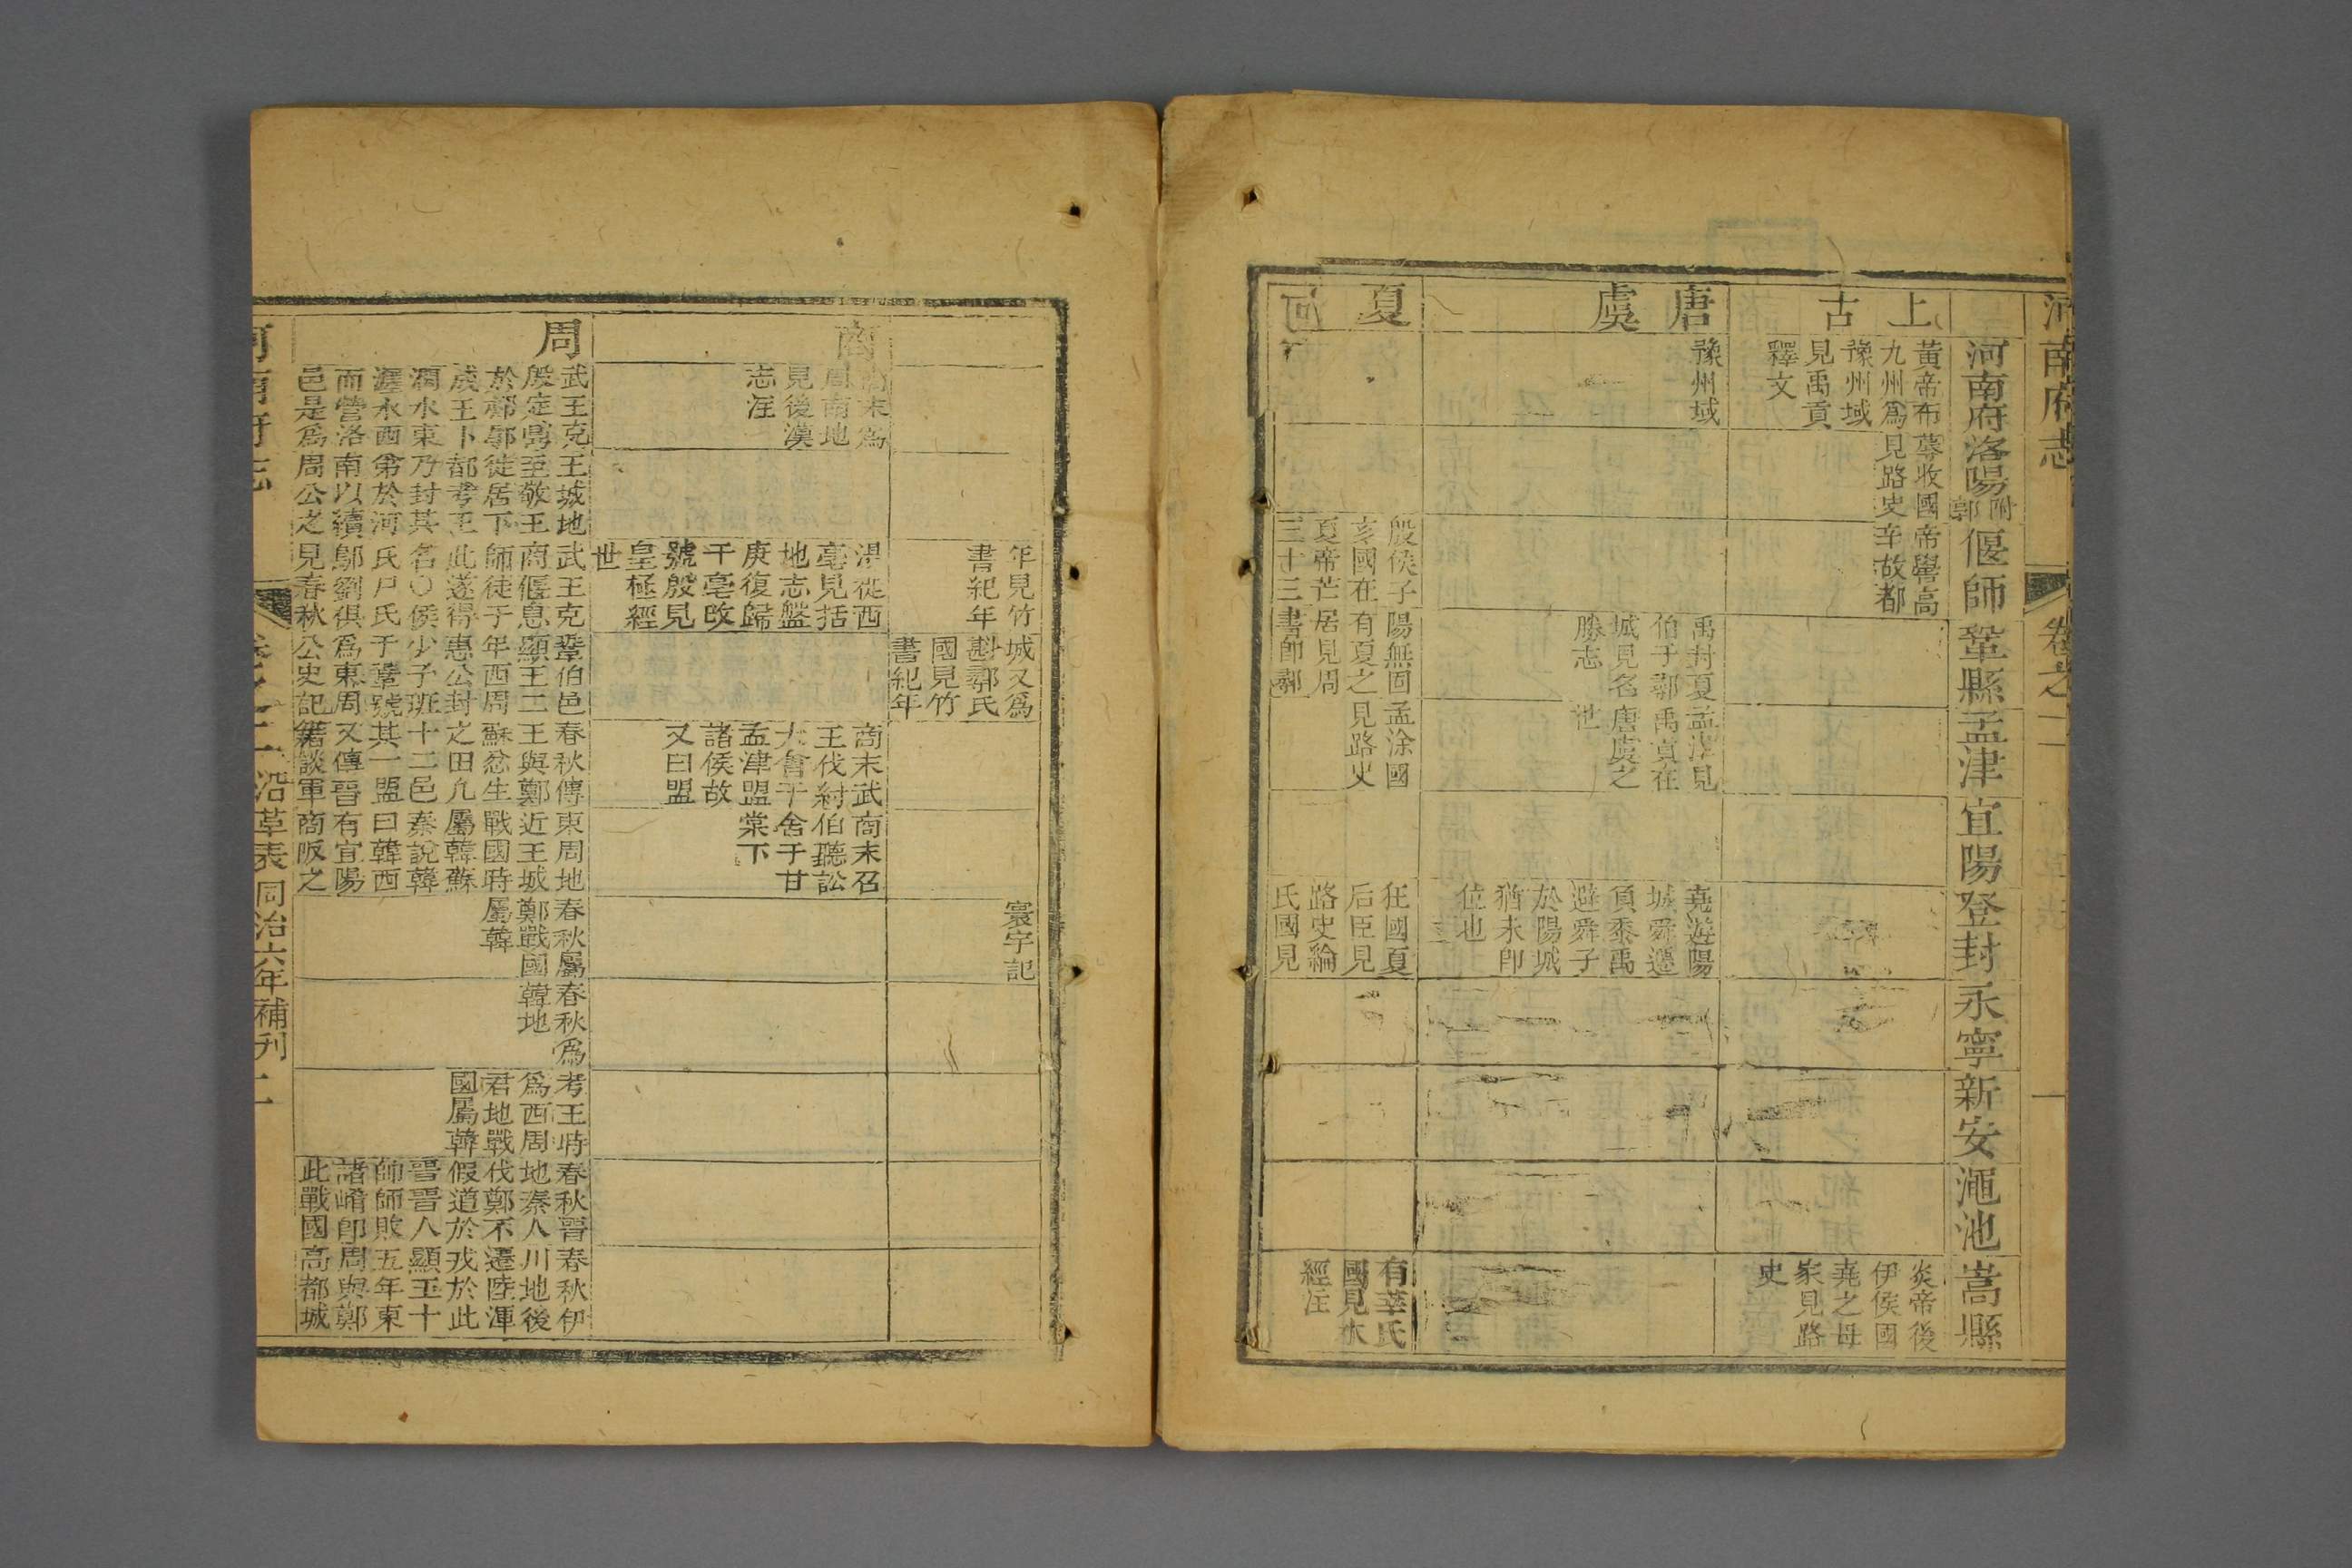 河南府志 卷之二 一
河南府洛陽附郭 偃師 鞏縣 孟津 宜陽 登封 永寧 新安 澠池 嵩縣
上古
黃帝布
九州爲
豫州域
見禹貢
釋文
蓐收國
見路史
帝嚳高
辛故都
炎帝後
伊侯國
堯之母
家見路
史
唐虞
豫州域
禹封夏
伯于鄩
城見名
勝志
孟津見
禹貢在
唐虞之
世
堯遊陽
城舜遷
負黍禹
避舜子
於陽城
猶未卽
位也
夏
殷侯子
亥國在
夏帝芒
三十三
陽無固
有夏之
居見周
書卽鄩
孟涂國
見路史
狂國夏
后臣見
路史綸
氏國見
有莘氏
國見水
經注
年見竹
書紀年
城又爲
斟鄩氏
國見竹
書紀年
寰宇記
商
商末爲
周南地
見後漢
志注
湯從西
亳見括
地志盤
庚復歸
于亳改
號殷見
皇極經
世
商末武
王伐紂
大會于
孟津盟
諸侯故
又曰盟
商末召
伯聽訟
舍于甘
棠下
周
武王克
殷定鼎
於郟鄏
成王卜
澗水東
瀍水西
而營洛
邑是爲
王城地
至敬王
徙居下
都考王
乃封其
第於河
南以續
周公之
武王克
商偃息
師徒于
此遂得
名○侯
氏尸氏
鄔劉俱
見春秋
鞏伯邑
顯王二
年西周
惠公封
少子班
于鞏號
爲東周
公史記
春秋傳
王與鄭
蘇忿生
之田凡
十二邑
其一盟
又傳晉
籍談軍
東周地
近王城
戰國時
屬韓蘇
秦說韓
曰韓西
有宜陽
商阪之
春秋屬
鄭戰國
屬韓
春秋爲
韓地
考王時
爲西周
君地戰
國屬韓
春秋晉
地秦人
伐鄭不
假道於
晉晉人
帥師敗
諸崤卽
此戰國
春秋伊
川地後
遷陸渾
戎於此
顯王十
五年東
周與鄭
高都城
河南府志 卷之二 沿革表 同治六年補刊 二